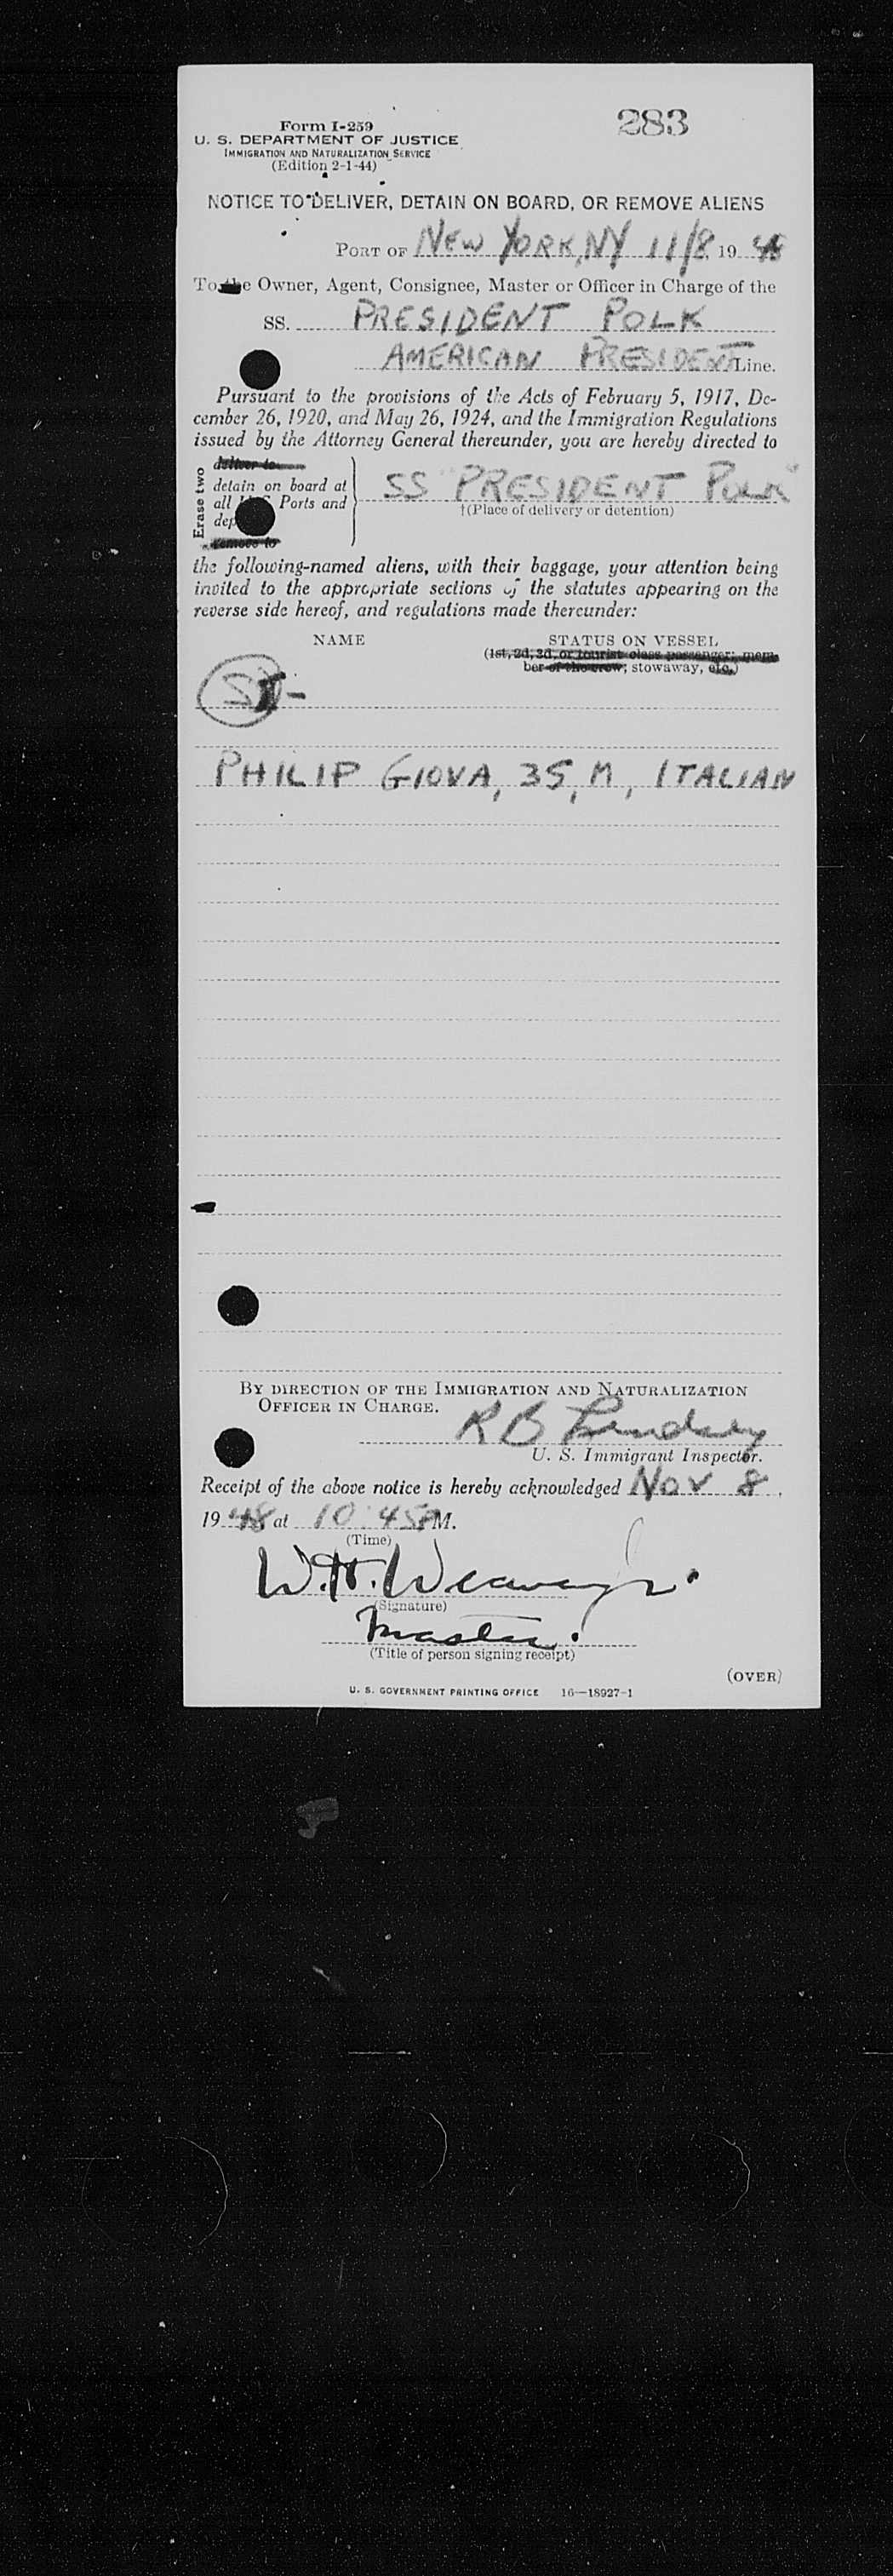 Form I-259
283
U. S. DEPARTMENT OF JUSTICE
IMMIGRATION AND NATURALIZATION SERVICE
(Edition 2-1-44)
NOTICE TO DELIVER, DETAIN ON BOARD, OR REMOVE ALIENS
PORT OF NEW YORK, NY 11/8, 1948
To the Owner, Agent, Consignee, Master or Officer in Charge of the
SS. PRESIDENT POLK
AMERICAN PRESIDENT Line.
Pursuant to the provisions of the Acts of February 5, 1917, De-
cember 26, 1920, and May 26, 1924, and the Immigration Regulations
issued by the Attorney General thereunder, you are hereby directed to
Erase two
deliver to
detain on board at
all U S Ports and
dep
remove to
SS "PRESIDENT POLK"
†(Place of delivery or detention)
the following-named aliens, with their baggage, your attention being
invited to the appropriate sections of the statutes appearing on the
reverse side hereof, and regulations made thereunder:
NAME STATUS ON VESSEL
(1st, 2d, 3d, or tourist class passenger; mem-
ber of the crew; stowaway, etc.)
SI-
PHILIP GIOVA, 35, M, ITALIAN
BY DIRECTION OF THE IMMIGRATION AND NATURALIZATION
OFFICER IN CHARGE.
R B Lindsey
U. S. Immigrant Inspector.
Receipt of the above notice is hereby acknowledged Nov 8,
1948 at 10:45 P M.
(Time)
W. H. Weaver Jr.
(Signature)
Master.
(Title of person signing receipt)
(OVER)
U. S. GOVERNMENT PRINTING OFFICE 16—18927-1